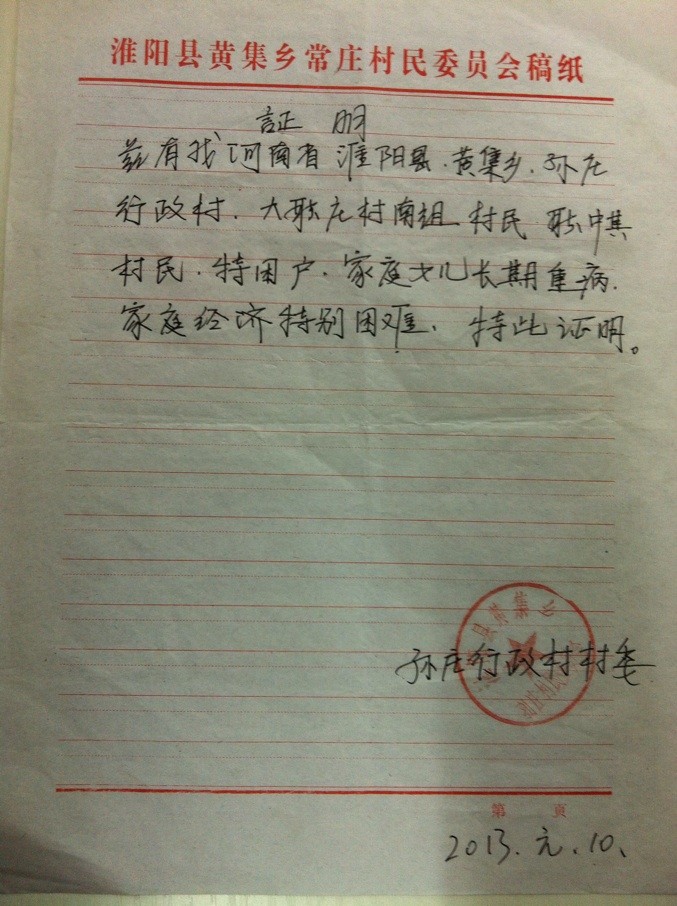 淮阳县黄集乡常庄村民委员会稿纸
証 明
兹有我河南省淮阳县.黄集乡.孙庄
行政村.大耿庄村南组村民 耿中其
村民.特困户.家庭女儿长期重病.
家庭经济特别困难.特此证明。
县黄集乡
孙庄行政村村委
第 页
2013.元.10.